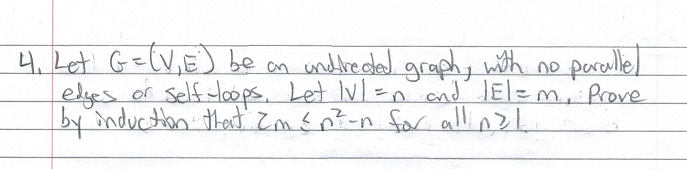 4. Let G=(V,E) be an undirected graph, with no parallel
edges or self-loops. Let |V|=n and |E|=m. Prove
by induction that 2m ≤ n²-n for all n≥1.